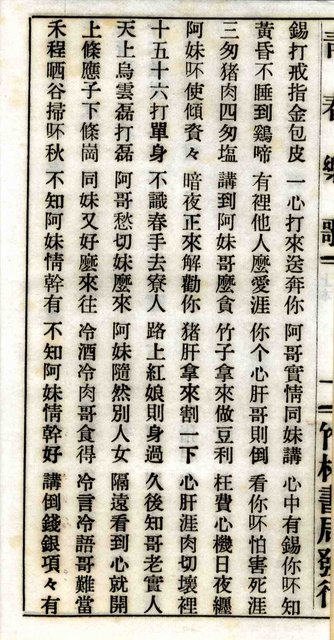 青春樂歌 一 竹林書局發行
錫打戒指金包皮 一心打來送奔你 阿哥實情同妹講 心中有錫你吥知
黃昏不睡到鷄啼 有裡他人麼愛涯 你个心肝哥則倒 看你吥怕害死涯
三匁猪肉四匁塩 講到阿妹哥麼貪 竹子拿來做豆利 枉費心機日夜纏
阿妹吥使傾賚々 暗夜正來解勸你 猪肝拿來割一下 心肝涯肉切壞裡
十五十六打單身 不識春手去寮人 路上紅娘則身過 久後知哥老實人
天上烏雲磊打磊 阿哥愁切妹麼來 阿妹隨然別人女 隔遠看到心就開
上條應子下條崗 同妹又好麼來往 冷酒冷肉哥食得 冷言冷語哥難當
禾程晒谷掃吥秋 不知阿妹情幹有 不知阿妹情幹好 講倒錢銀項々有